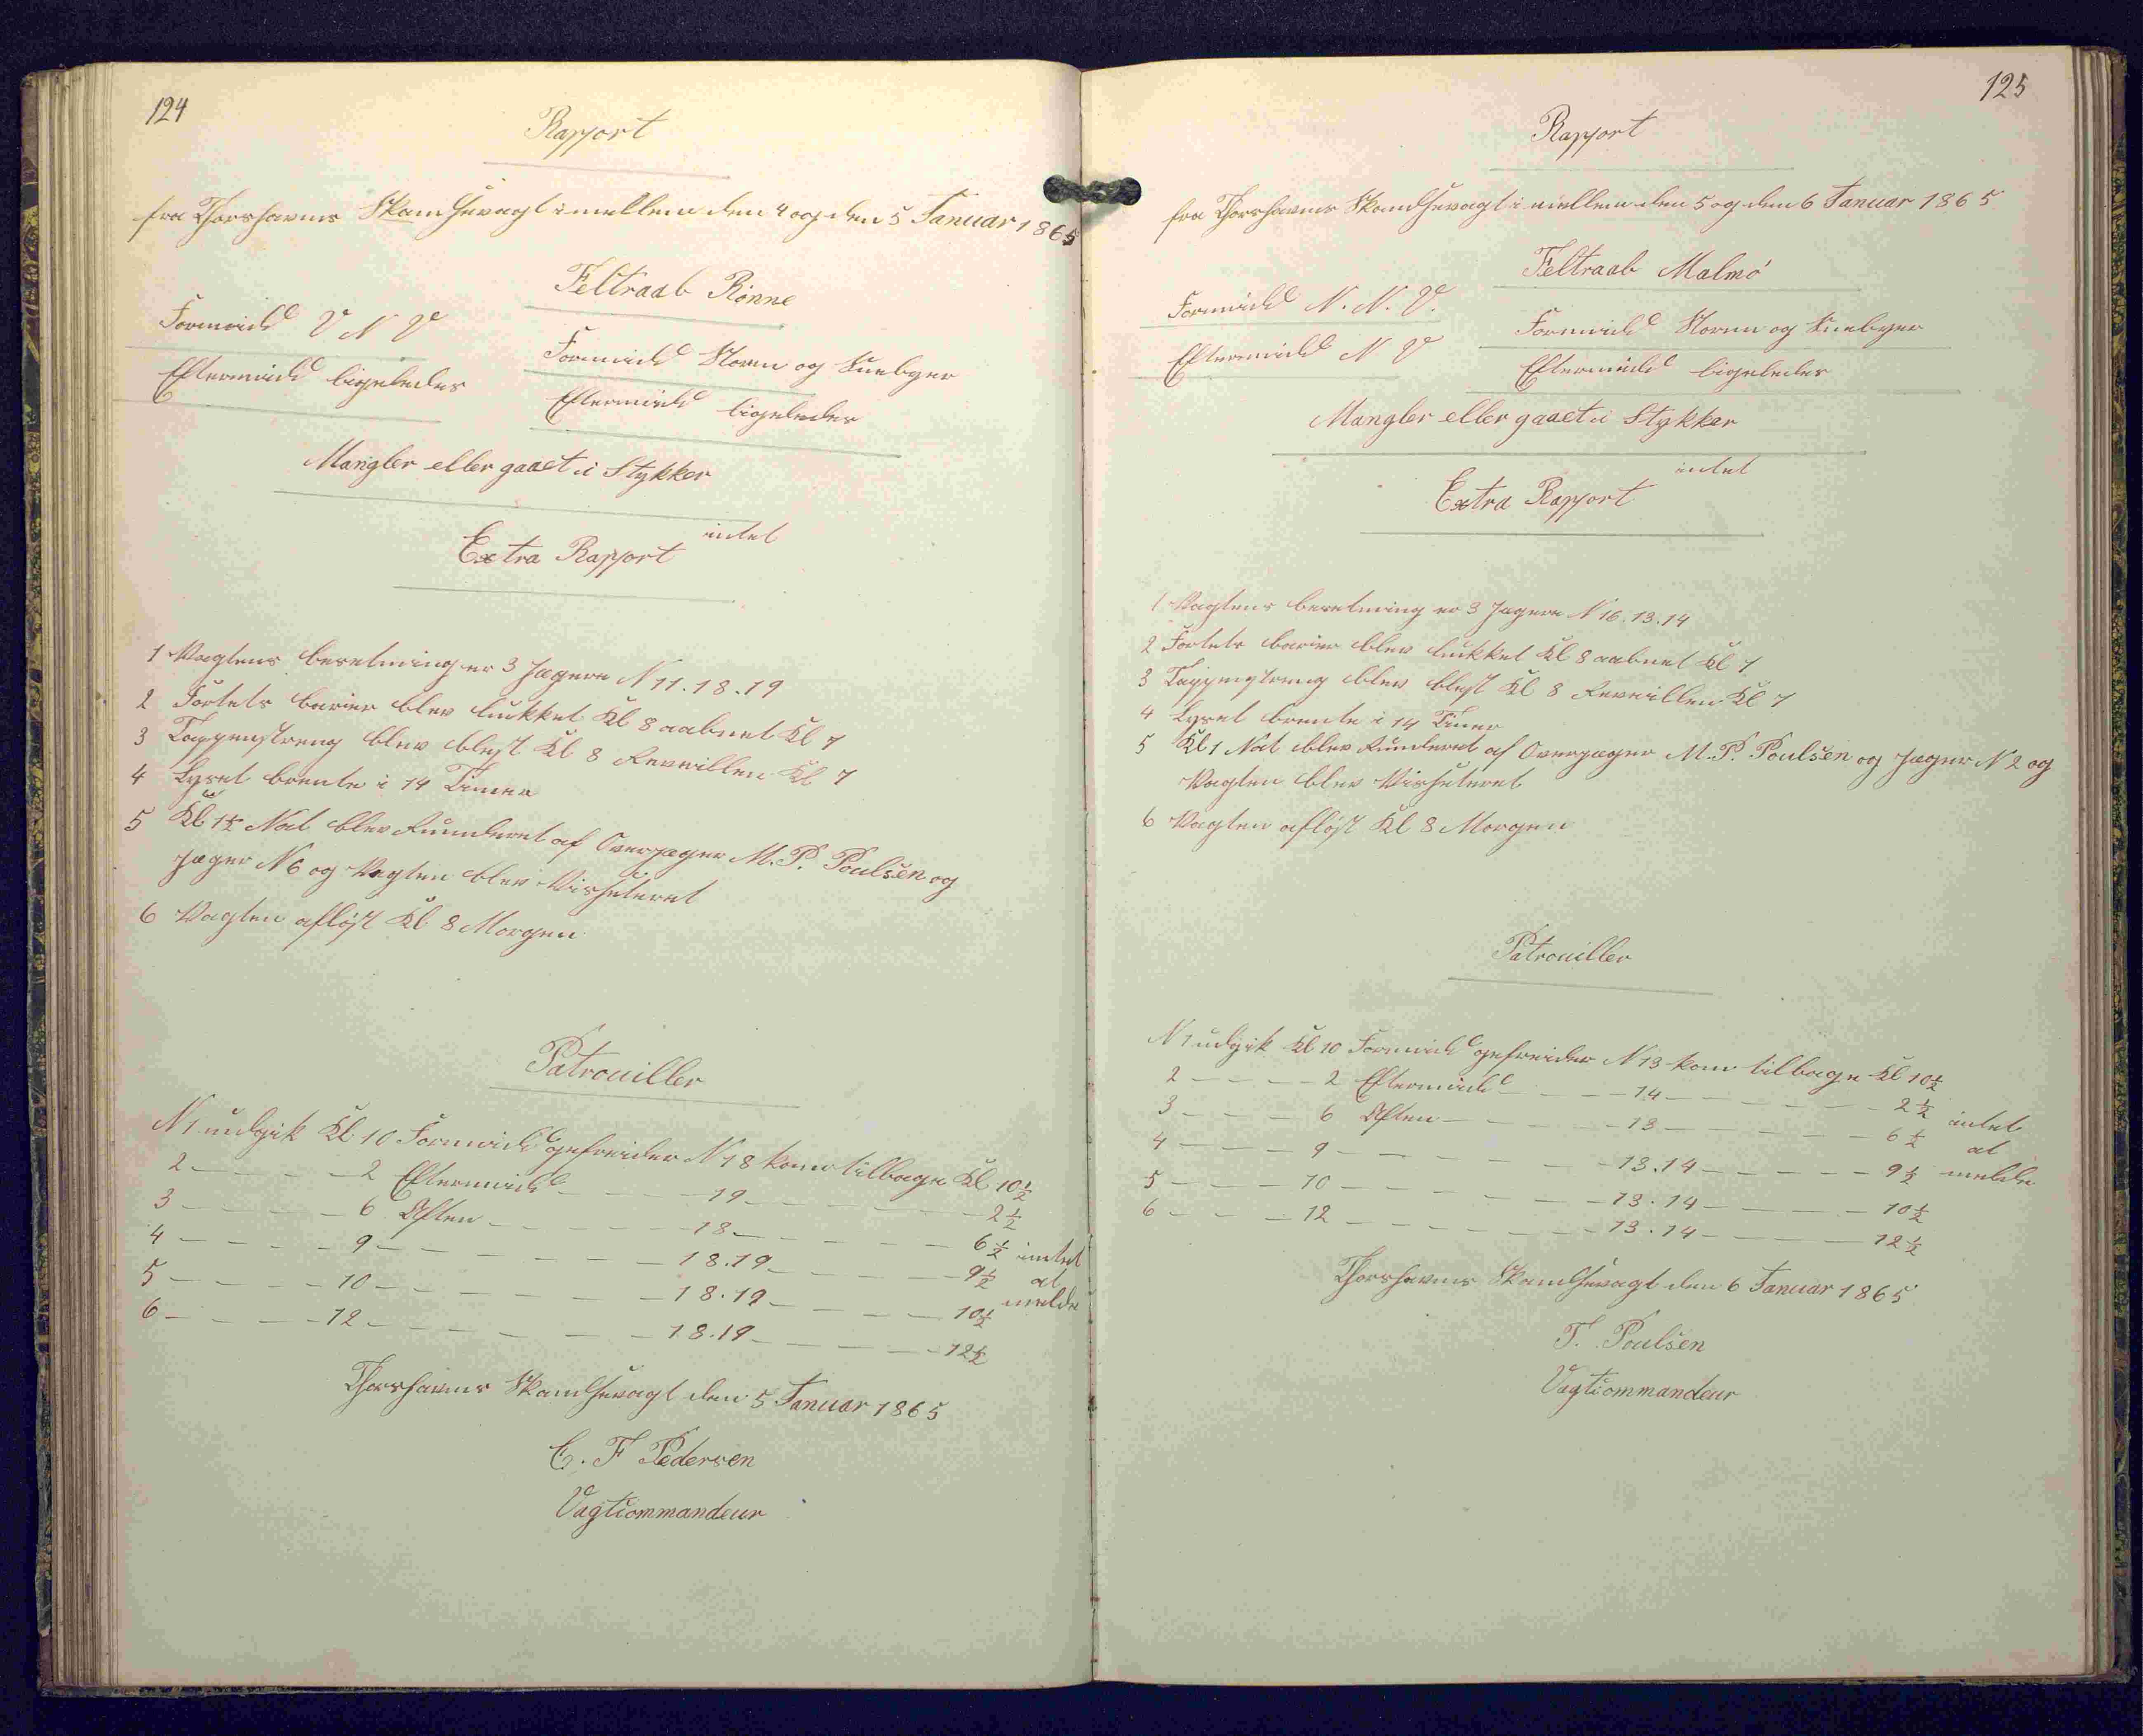 124
Rapport
fra Thorshavns Skandsevagt imellem den 4 og den 5 Januar 1865
Feltraab Rønne
Formidd V N V
Eftermidd ligeledes
Formidd Storm og Snebyer
Eftermidd ligeledes
Mangler eller gaaet i Stykker
intet
Extra Rapport
1 Vagtens besetning er 3 Jægere N 11. 18. 19
2 Fortets barier blev lukket Kl 8 aabnet Kl 7
3 Tappenstreng blev blest Kl 8 Reveillen Kl 7
4 Lyset brente i 14 Timer
5 Kl 1½ Nat blev Runderet af Overjæger M. P. Poulsen og
Jæger N 6 og Vagten blev Visiteret
6 Vagten afløst Kl 8 Morgen
Patrouiller
N 1 udgik Kl 10 Formidd gefreider N 18 kom tilbage Kl 10½
2 — — — — 2 Eftermidd — — — 19 — — — — — 2½
3 — — — — 6 Aften — — — — 18 — — — — — 6½ intet
4 — — — — 9 — — — — — — 18.19 — — — — 9½ at
5 — — — — 10 — — — — — — 18.19 — — — — 10½ melde
6 — — — — 12 — — — — — — 18.19 — — — — 12½
Thorshavns Skandsevagt den 5 Januar 1865
C. F Pedersen
Vagtcommandeur
125
Rapport
fra Thorshavns Skandsevagt i mellem den 5 og den 6 Januar 1865
Feltraab Malmö
Formidd N. N. V.
Eftermidd N V
Formidd Storm og Snebyer
Eftermidd ligeledes
Mangler eller gaaet i Stykker
intet
Extra Rapport
1 Vagtens besetning er 3 Jægere N 16. 13. 14
2 Fortets barier blev lukket Kl 8 aabnet Kl 7
3 Tappenstreng blev blest Kl 8 Reveillen Kl 7
4 Lyset brente i 14 Timer
5 Kl 1 Nat blev Runderet af Overjæger M. P. Poulsen og Jæger N 2 og
Vagten blev Visiteret
6 Vagten afløst Kl 8 Morgen
Patrouiller
N 1 udgik Kl 10 Formidd gefreider N 13 kom tilbage Kl 10½
2 — — — — 2 Eftermidd — — — 14 — — — — — 2½ intet
3 — — — — 6 Aften — — — — 13 — — — — — 6½ at
4 — — — — 9 — — — — — — 13.14 — — — — 9½ melde
5 — — — — 10 — — — — — — 13.14 — — — — 10½
6 — — — — 12 — — — — — — 13.14 — — — — 12½
Thorshavns Skandsevagt den 6 Januar 1865
T. Poulsen
Vagtcommandeur